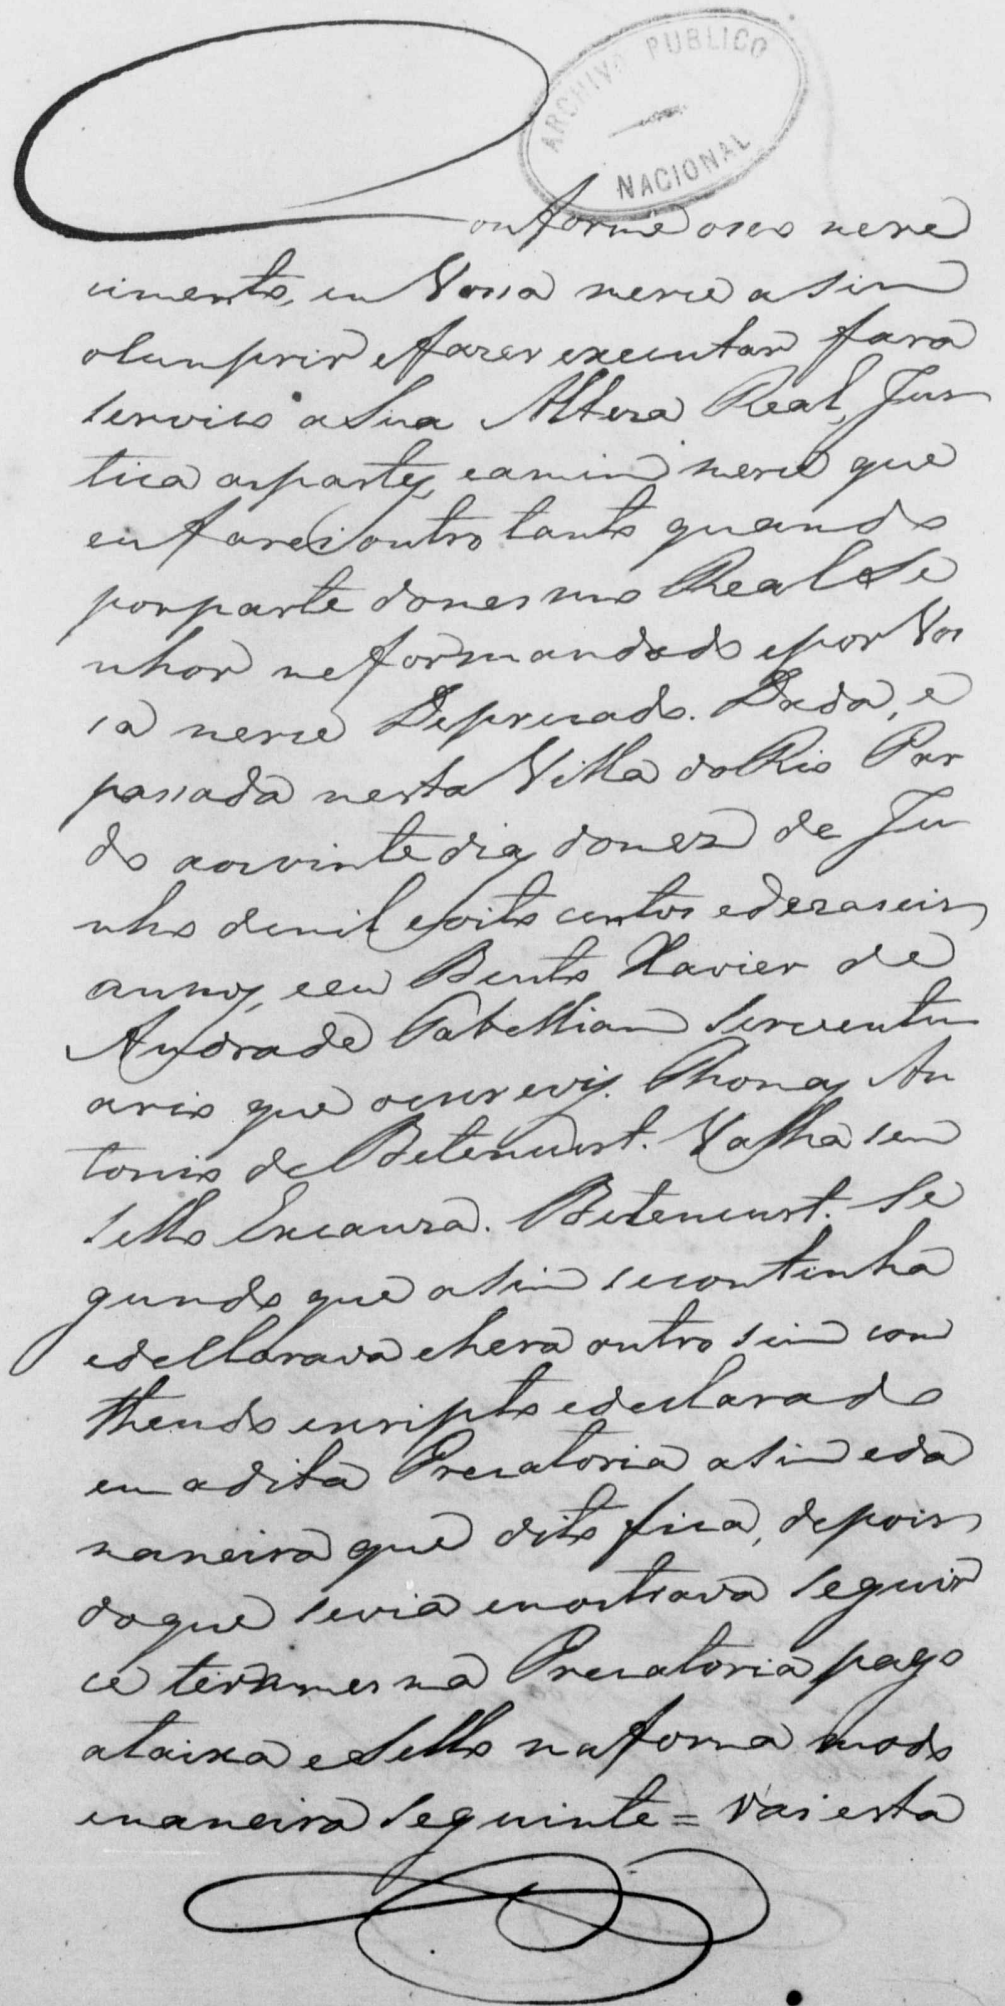 ARCHIVO PUBLICO
NACIONAL
Conforme oseo mere
cimento, em Vossa merce asim
o cumprir efazer executar fará
serviso aSua Alteza Real, Jus
tica aspartes, eamim merce que
eu farei outro tanto quando
porparte domesmo Real Se
nhor mefor mandado epor Vos
sa merce Deprecado. Dada, e
passada nesta Villa do Rio Par
do aos vinte dias domez de Ju
nho demil eoito centos edezaseis
annos, eeu Bento Xavier de
Andrade Tabelliam Serventu
ario que oescrevy. Thomas An
tonio de Betencurt. Valha sem
sello Excauza. Betencurt. Se
gundo que asim secontinha
edecllarava ehera outro sim con
theudo escripto edeclarado
em adita Precatoria asim eda
maneira que dito fica, depois
doque sevia emostrava seguir
ce ter amesma Precatoria pago
ataixa eSello naforma modo
emaneira seguinte = Vai esta